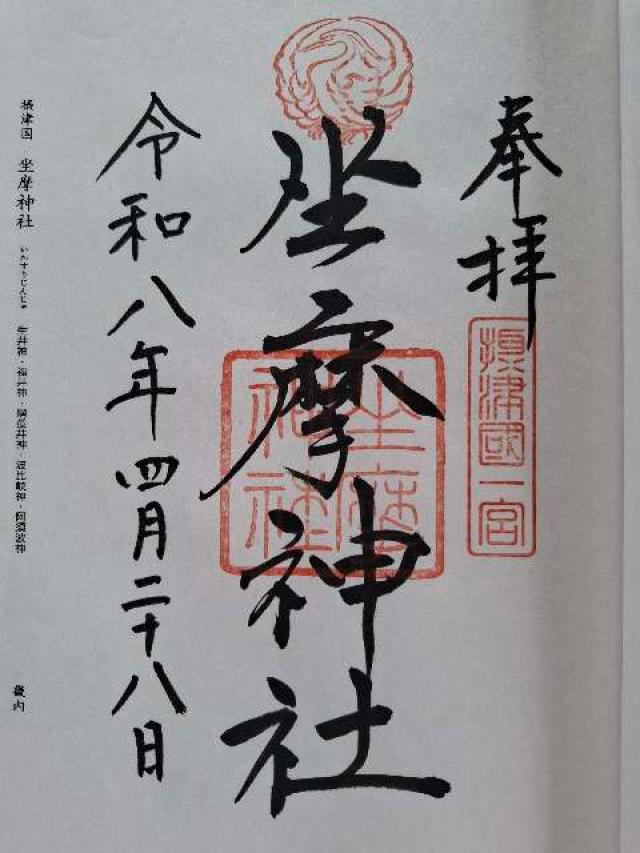 奉拝
摂津國一宮
坐摩神社
坐摩神社
令和八年四月二十八日
摂津国 坐摩神社 いかすりじんじゃ 生井神・福井神・綱長井神・波比岐神・阿須波神
畿内